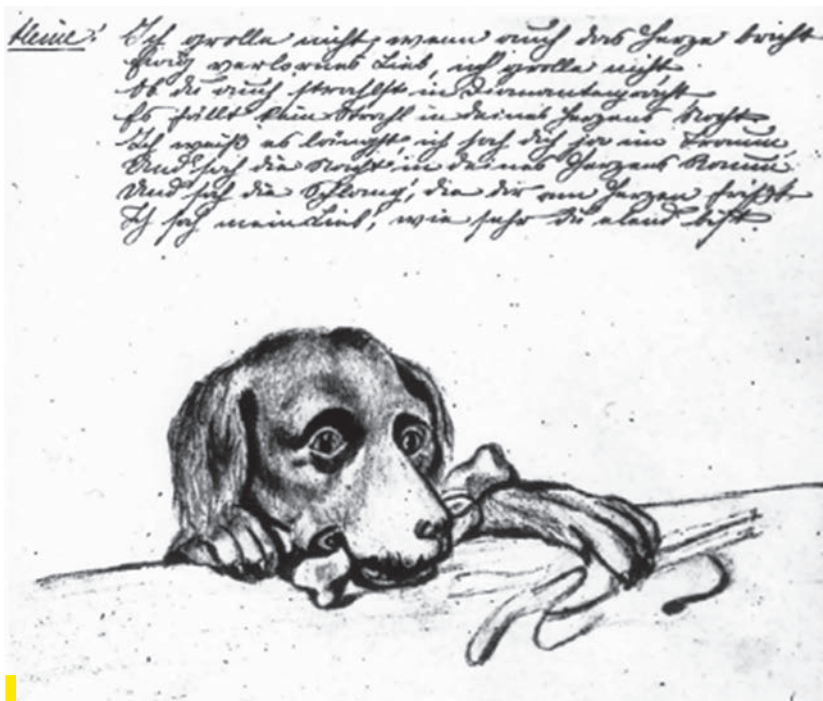 Heine: Ich grolle nicht, wenn auch das Herze bricht
Ewig verlornes Lieb, ich grolle nicht.
Ob du auch strahlst in Diamantenpracht
Es fällt kein Strahl in deines Herzens Nacht
Ich weiß es längst, ich sah dich ja im Traum,
Und sah die Nacht in deines Herzens Raum
Und sah die Schlang', die dir am Herzen frißt
Ich sah mein Lieb', wie sehr du elend bist.